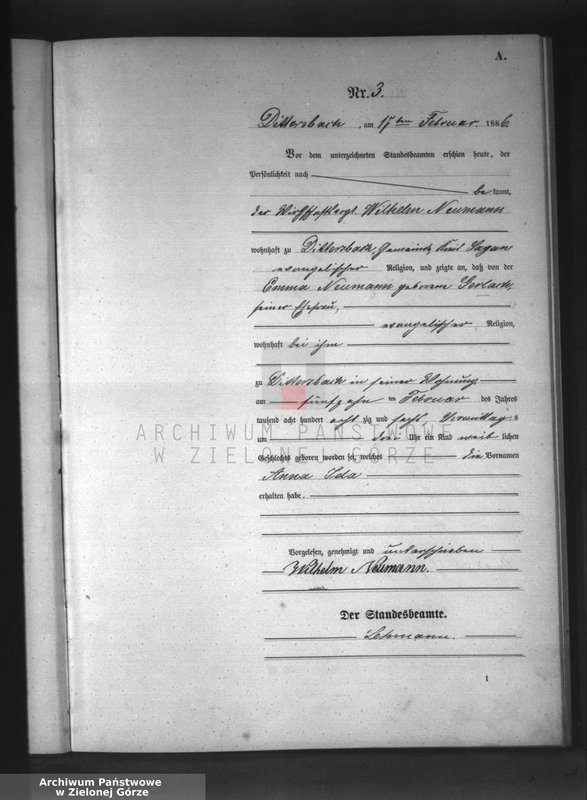 A.
Nr. 3.
Dittersbach, am 17ten Februar 1886.
Vor dem unterzeichneten Standesbeamten erschien heute, der
Persönlichkeit nach
be kannt,
der Wilhelm Neumann
wohnhaft zu Dittersbach, Gemeinde, Kreis Sagan
evangelischer Religion, und zeigte an, daß von der
Emma Neumann geborene Gerlach,
seiner Ehefrau,
evangelischer Religion,
wohnhaft bei ihm
zu Dittersbach in seiner Wohnung
am fünfzehn ten Februar des Jahres
tausend acht hundert acht zig und sechs Vormittags
um drei Uhr ein Kind weib lichen
Geschlechts geboren worden sei, welches die Vornamen
Anna Ida
erhalten habe.
Vorgelesen, genehmigt und unterschrieben
Wilhelm Neumann.
Der Standesbeamte.
Lehmann.
1
ARCHIWUM PAŃSTWOWE
W ZIELONEJ GÓRZE
Archiwum Państwowe
w Zielonej Górze